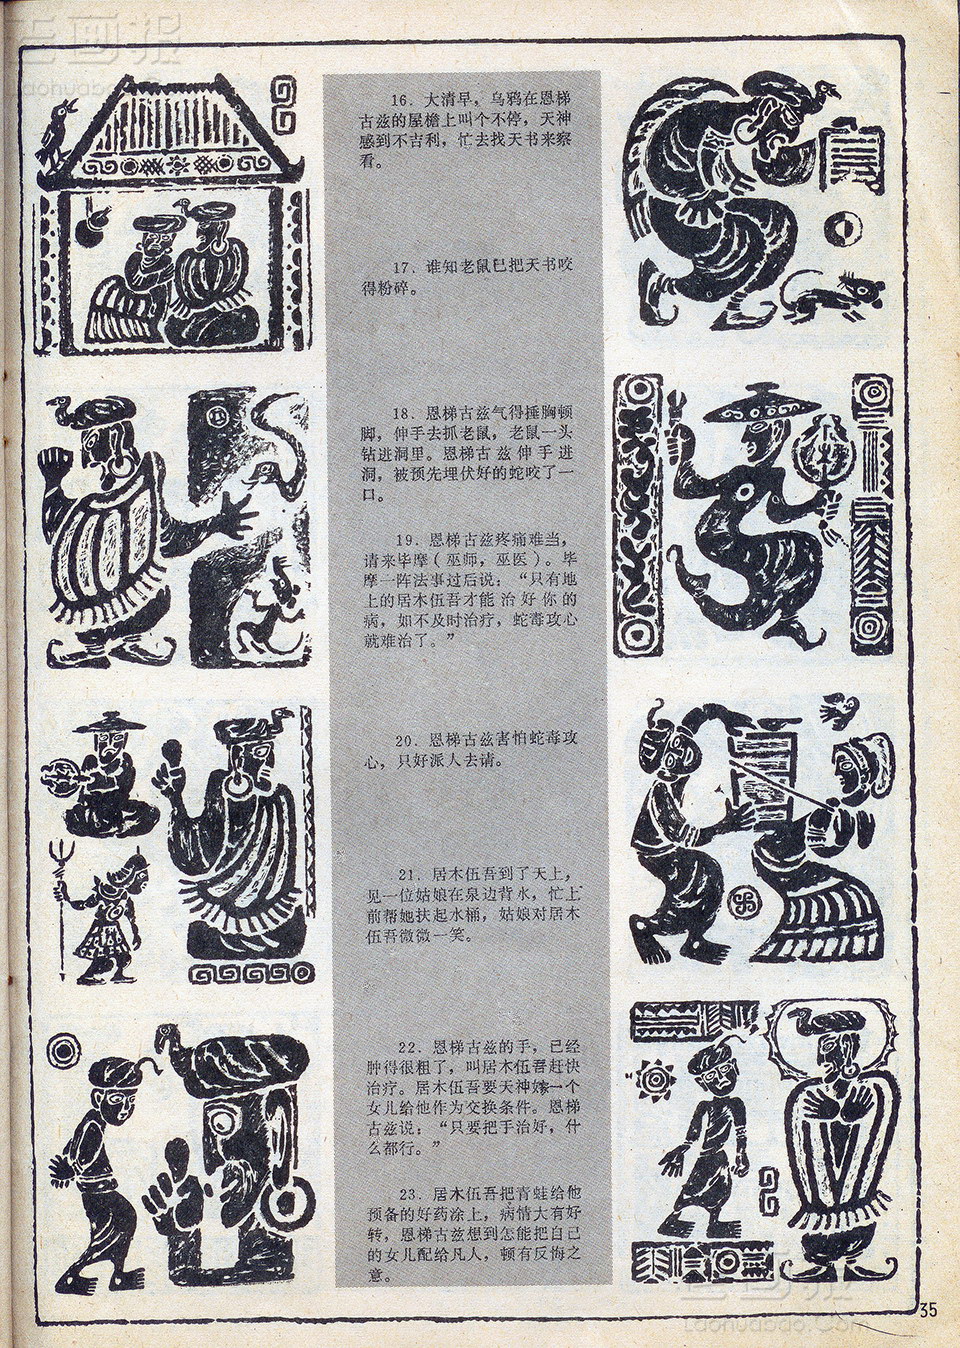 老画报
Laohuabao.Com
16．大清早，乌鸦在恩梯
古兹的屋檐上叫个不停，天神
感到不吉利，忙去找天书来察
看。
17．谁知老鼠已把天书咬
得粉碎。
18．恩梯古兹气得捶胸顿
脚，伸手去抓老鼠，老鼠一头
钻进洞里。恩梯古兹伸手进
洞，被预先埋伏好的蛇咬了一
口。
19．恩梯古兹疼痛难当，
请来毕摩（巫师，巫医）。毕
摩一阵法事过后说：“只有地
上的居木伍吾才能治好你的
病，如不及时治疗，蛇毒攻心
就难治了。”
20．恩梯古兹害怕蛇毒攻
心，只好派人去请。
21．居木伍吾到了天上，
见一位姑娘在泉边背水，忙上
前帮她扶起水桶，姑娘对居木
伍吾微微一笑。
22．恩梯古兹的手，已经
肿得很粗了，叫居木伍吾赶快
治疗。居木伍吾要天神嫁一个
女儿给他作为交换条件。恩梯
古兹说：“只要把手治好，什
么都行。”
23．居木伍吾把青蛙给他
预备的好药涂上，病情大有好
转，恩梯古兹想到怎能把自己
的女儿配给凡人，顿有反悔之
意。
35
老画报
Laohuabao.Com